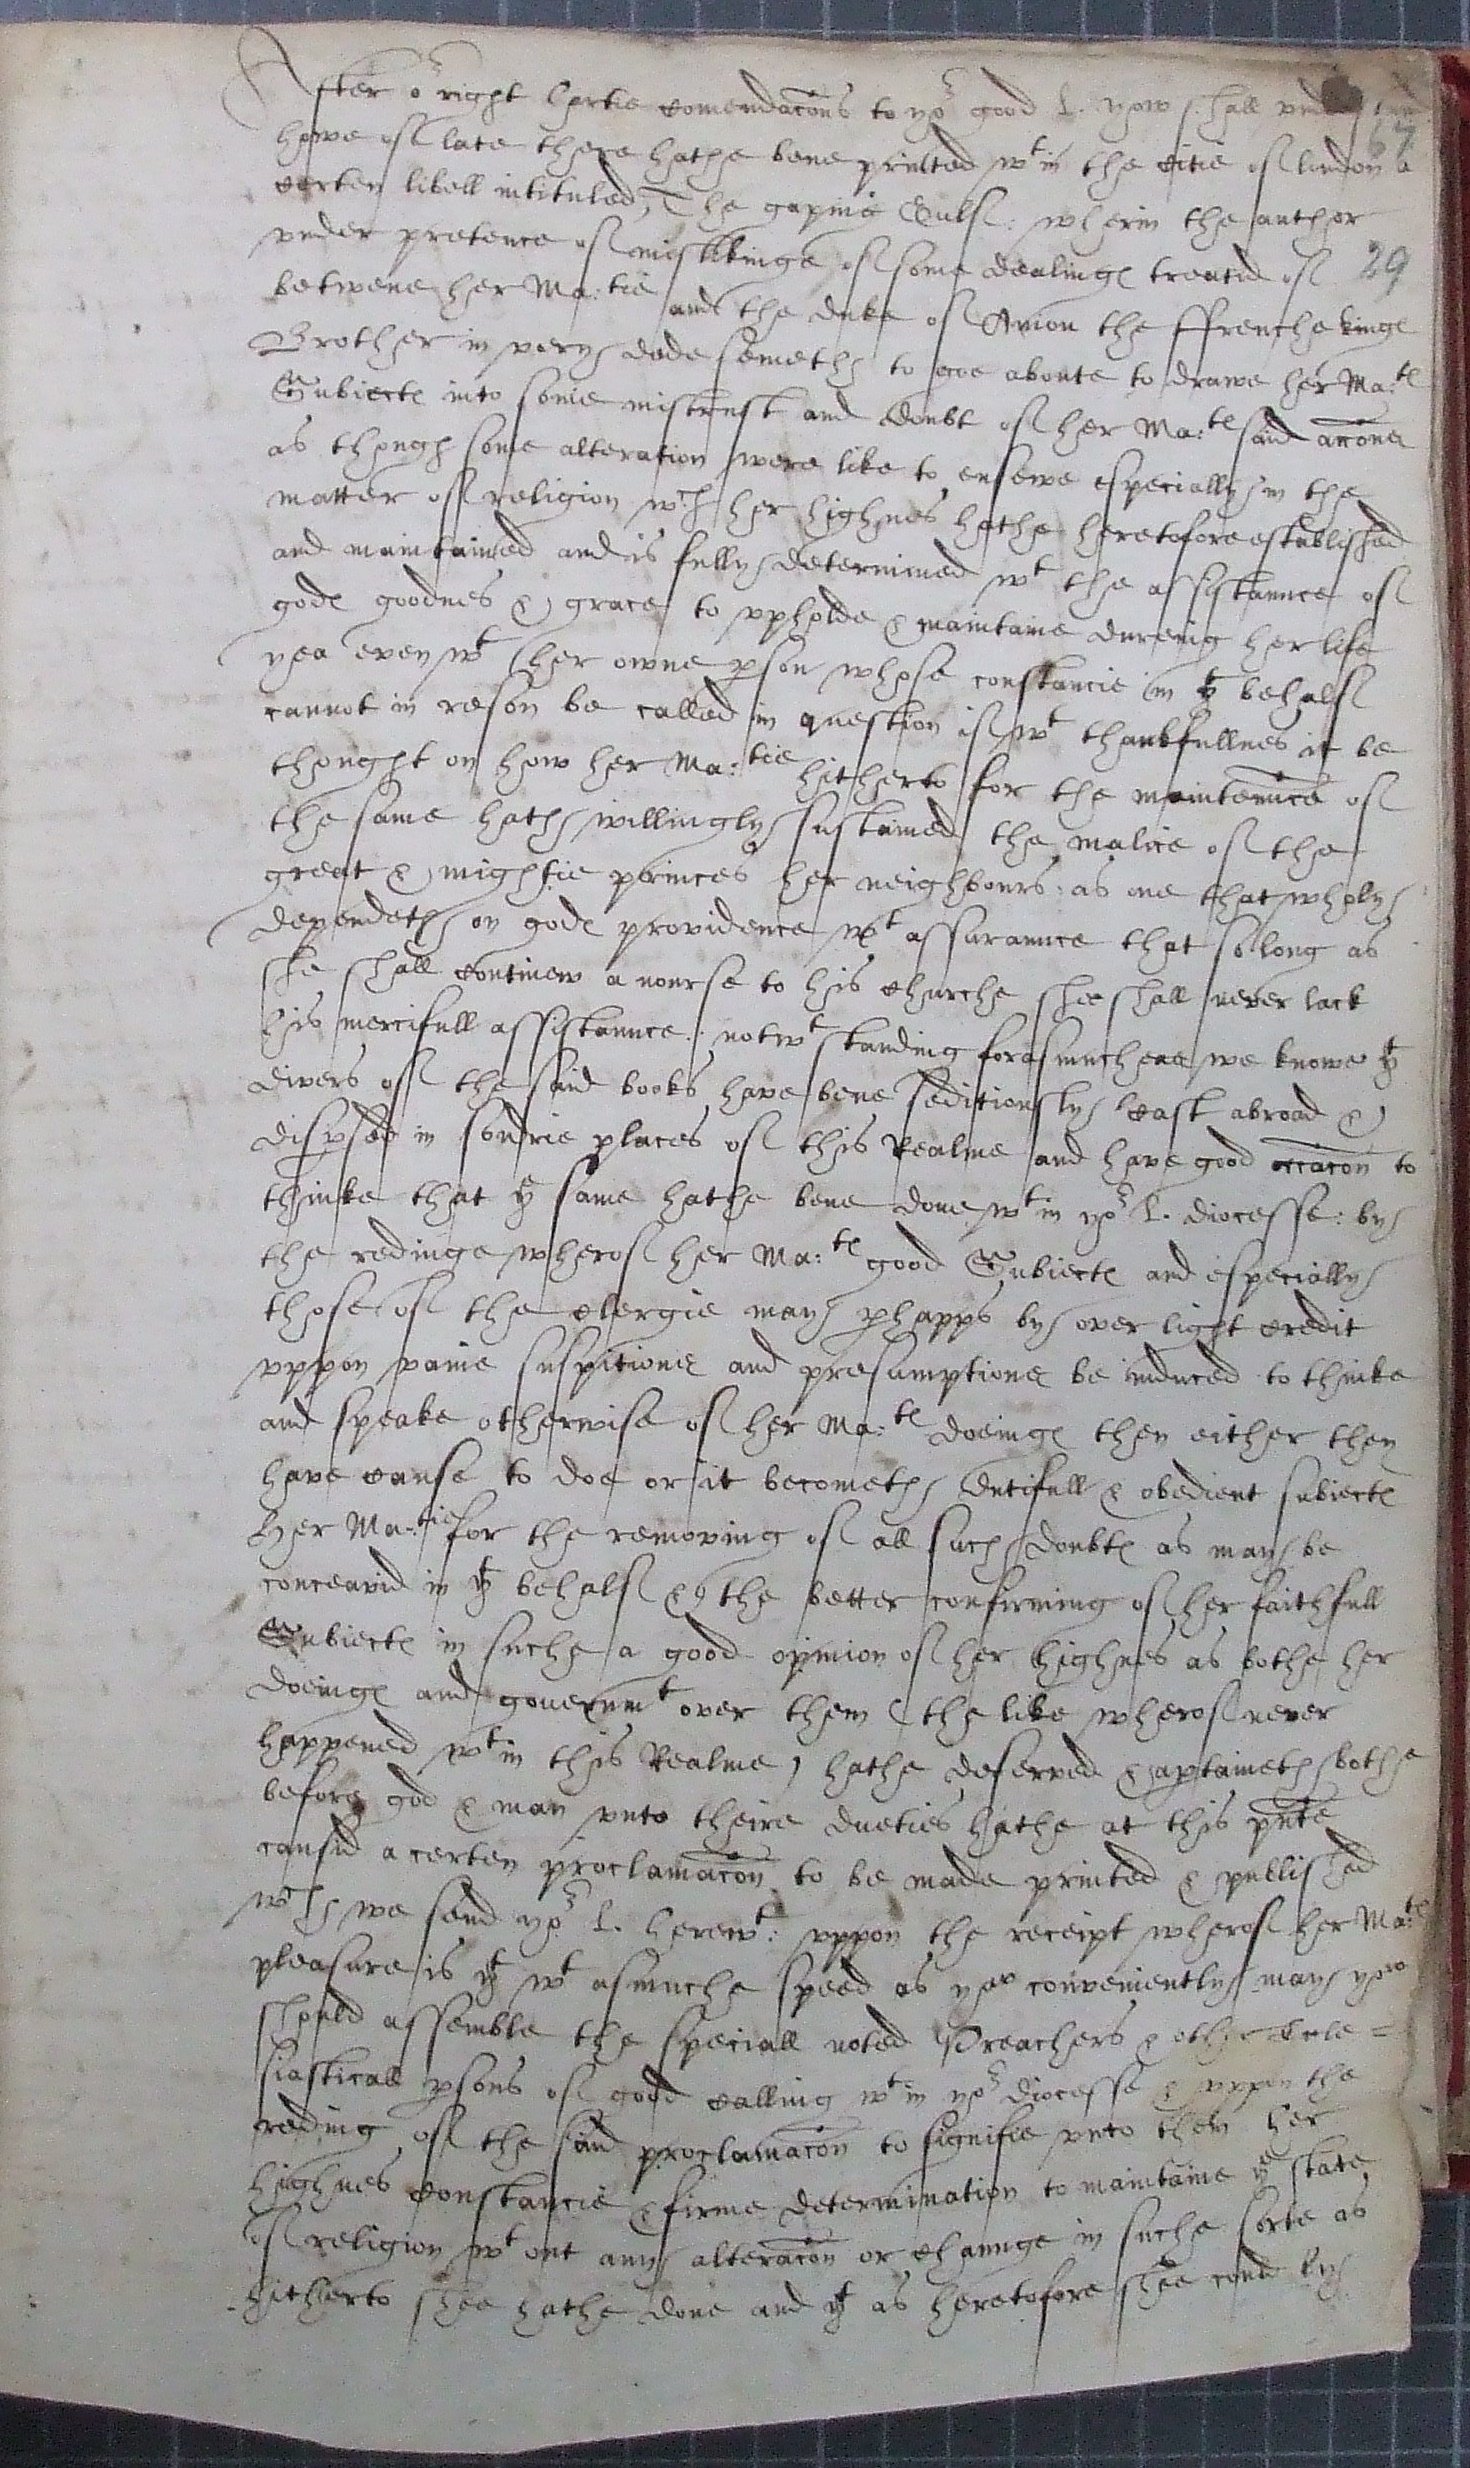 After or right hartie comendacons to yor good L. yow shall understand
howe of late there hathe bene printed wt in the citie of london a
certen libell intituled, The gapinge Gulf: wherin the author
under pretence of mislikinge of some dealinges treatid of
betwene her Ma:tie and the duke of Aniou the ffrenche kinges
Brother in very dede semeth to goe aboute to drawe her Ma:tes
Subiectes into some mistrust and doubt of her Ma:tes said accones
as though some alteration were like to ensewe especially in the
matter of religion wch her highnes hathe heretofore established
and maintained and is fully determined wt the assistaunce of
godes goodnes & grace to upholde & maintaine dureing her life
yea even wt her owne pson whose constancie in yt behalf
cannot in reson be called in question if wt thankfullnes it be
thought on how her Ma:tie hitherto for the maintennce of
the same hath willingly sustained the malice of the
great & mightie princes her neighbours: as one that wholy
dependeth on godes providence wt assuraunce that so long as
she shall continew a nourse to his churche shee shall never lack
his mercifull assistaunce: notwtstanding forasmuche as we knowe yt
divers of the said books have bene seditiously cast abroad &
dispsed in sondrie places of this Realme and have good occacon to
thinke that ye same hathe bene done wt in yor L. diocesse: by
the redinge wherof her Ma:tes good Subiectes and especially
those of the clergie may phapps by over light credit
uppon vaine suspitiones and presumptiones be induced to thinke
and speake otherwise of her Ma:tes doeinges then either they
have cause to doe or it becometh dutifull & obedient subiectes
Her Ma:tie for the removing of all such doubtes as may be
conceavid in yt behalf & the better confirming of her faithfull
Subiectes in suche a good opinion of her highnes as bothe her
doeinges and governmt over them (the like wherof never
happened wt in this Realme) hathe deserved & aptaineth bothe
before god & man unto theire dueties hathe at this pnte
causid a certen proclamacon to be made printed & publlished
wch we send yor L. herewt: uppon the receipt wherof her Ma:tes
pleasure is yt wt asmuche speed as yow conveniently may yow
should assemble the speciall noted Preachers & other Eccle=
siasticall psons of good calling wt in yor diocesse & uppon the
reding of the said proclamacon to signifie unto them her
highnes constancie & firme determination to maintaine ye state
of religion wt out any alteracon or chaunge in suche sorte as
hitherto shee hathe done and yt as heretofore shee could by
67
29